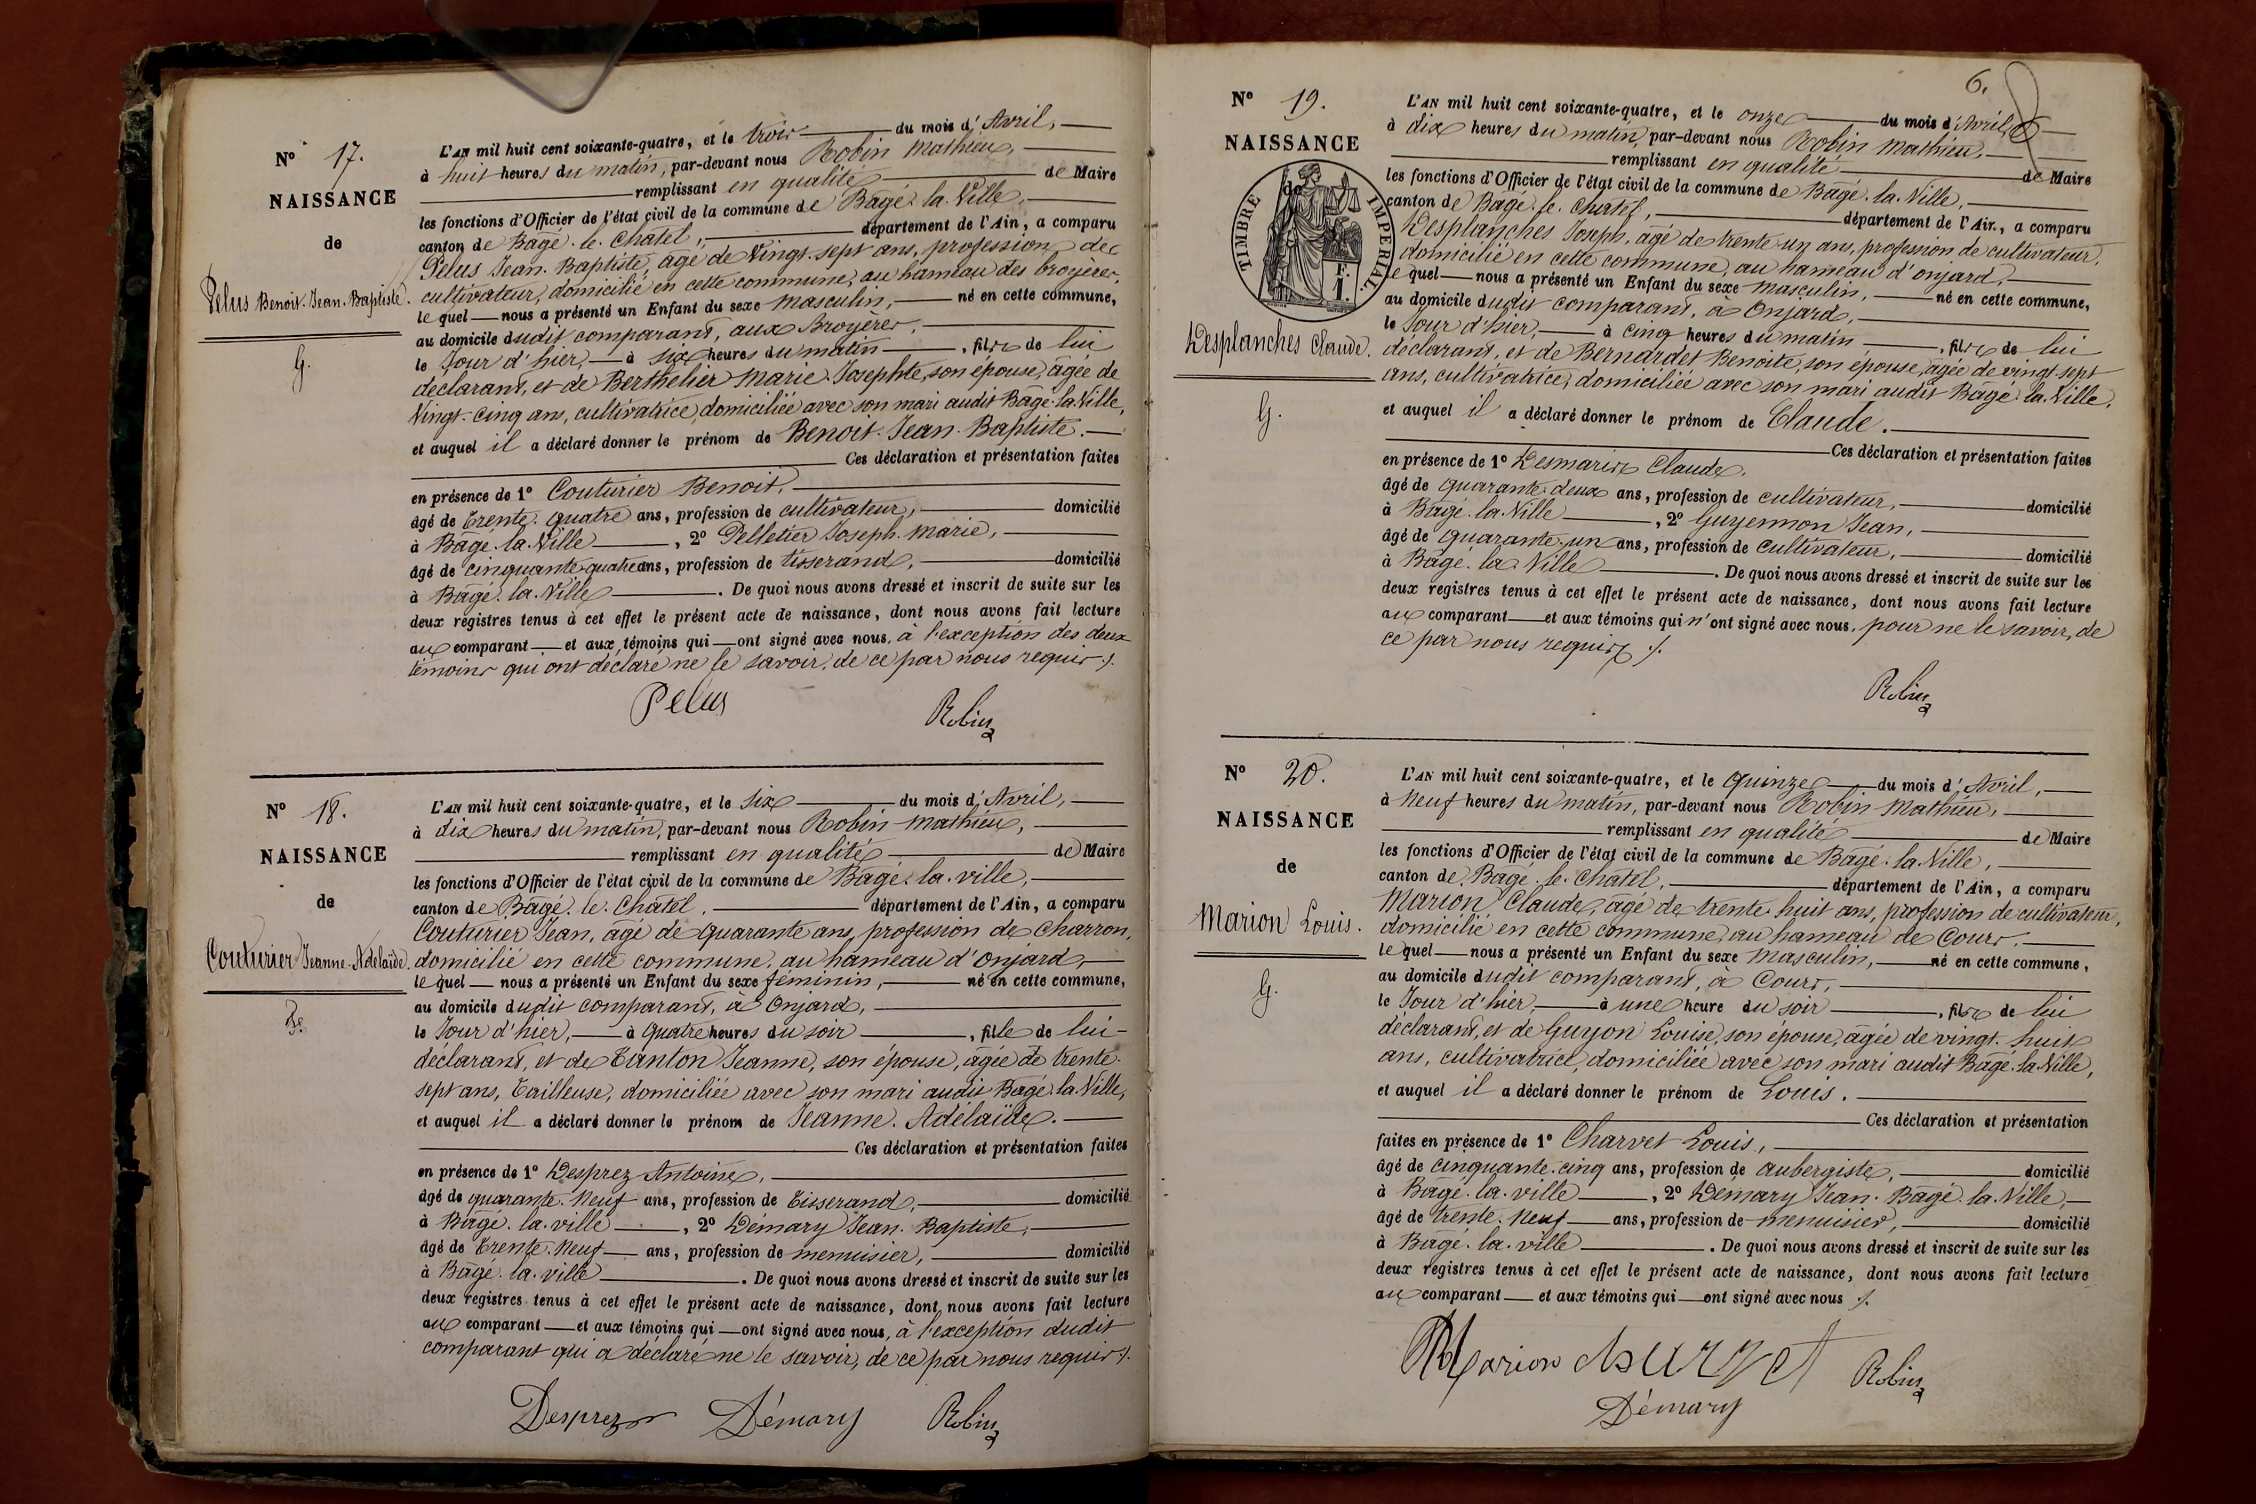 N° 17.
NAISSANCE
de
Pelus Benoit-Jean-Baptiste.
G.
L'AN mil huit cent soixante-quatre, et le trois du mois d'Avril,
à huit heures du matin, par-devant nous Robin Mathieu,
remplissant en qualité de Maire
les fonctions d'Officier de l'état civil de la commune de Bâgé-la-Ville,
canton de Bâgé-le-Châtel, département de l'Ain, a comparu
Pelus Jean-Baptiste, âgé de Vingt-sept ans, profession de
cultivateur, domicilié en cette commune, au hameau des broyères,
le quel nous a présenté un Enfant du sexe masculin, né en cette commune,
au domicile dudit comparant, aux Broyères,
le Jour d'hier, à six heures du matin, fils de lui
déclarant, et de Berthelier Marie Josephte, son épouse, âgée de
Vingt-cinq ans, cultivatrice, domiciliée avec son mari audit Bâgé-la-Ville,
et auquel il a déclaré donner le prénom de Benoit-Jean-Baptiste.
Ces déclaration et présentation faites
en présence de 1° Couturier Benoit,
âgé de trente-quatre ans, profession de cultivateur, domicilié
à Bâgé-la-Ville, 2° Pelletier Joseph-Marie,
âgé de cinquante-quatre ans, profession de tisserand, domicilié
à Bâgé-la-Ville. De quoi nous avons dressé et inscrit de suite sur les
deux registres tenus à cet effet le présent acte de naissance, dont nous avons fait lecture
au comparant et aux témoins qui ont signé avec nous, à l'exception des deux
témoins qui ont déclaré ne le savoir, de ce par nous requis ./.
Pelus Robin
N° 18.
NAISSANCE
de
Couturier Jeanne-Adélaïde.
L'AN mil huit cent soixante-quatre, et le six du mois d'Avril,
à dix heures du matin, par-devant nous Robin Mathieu,
remplissant en qualité de Maire
les fonctions d'Officier de l'état civil de la commune de Bâgé-la-ville,
canton de Bâgé-le-Châtel, département de l'Ain, a comparu
Couturier Jean, âgé de quarante ans, profession de Charron,
domicilié en cette commune, au hameau d'onjard,
le quel nous a présenté un Enfant du sexe féminin, né en cette commune,
au domicile dudit comparant, à Onjard,
le Jour d'hier, à quatre heures du soir, fille de lui
déclarant, et de Tanton Jeanne, son épouse, âgée de trente-
sept ans, Tailleuse, domiciliée avec son mari audit Bâgé-la-Ville,
et auquel il a déclaré donner le prénom de Jeanne-Adélaïde.
Ces déclaration et présentation faites
en présence de 1° Desprez Antoine,
âgé de quarante-neuf ans, profession de Tisserand, domicilié
à Bâgé-la-ville, 2° Démary Jean-Baptiste,
âgé de trente-neuf ans, profession de menuisier, domicilié
à Bâgé-la-ville. De quoi nous avons dressé et inscrit de suite sur les
deux registres tenus à cet effet le présent acte de naissance, dont nous avons fait lecture
au comparant et aux témoins qui ont signé avec nous, à l'exception dudit
comparant qui a déclaré ne le savoir, de ce par nous requis ./.
Desprez Démary Robin
6.
N° 19.
NAISSANCE
de
TIMBRE IMPERIAL
F.
1.
Desplanches Claude.
G.
L'AN mil huit cent soixante-quatre, et le onze du mois d'Avril,
à dix heures du matin, par-devant nous Robin Mathieu,
remplissant en qualité de Maire
les fonctions d'Officier de l'état civil de la commune de Bâgé-la-Ville,
canton de Bâgé-le-Chatel, département de l'Ain, a comparu
Desplanches Joseph, âgé de trente-un ans, profession de cultivateur,
domicilié en cette commune, au hameau d'onjard,
le quel nous a présenté un Enfant du sexe masculin, né en cette commune,
au domicile dudit comparant, à Onjard,
le Jour d'hier, à cinq heures du matin, fils de lui
déclarant, et de Bernardet Benoite, son épouse, âgée de vingt-sept
ans, cultivatrice, domiciliée avec son mari audit Bâgé-la-Ville,
et auquel il a déclaré donner le prénom de Claude.
Ces déclaration et présentation faites
en présence de 1° Desmaris Claude,
âgé de quarante-deux ans, profession de cultivateur, domicilié
à Bâgé-la-Ville, 2° Guyennon Jean,
âgé de quarante-un ans, profession de cultivateur, domicilié
à Bâgé-la-Ville. De quoi nous avons dressé et inscrit de suite sur les
deux registres tenus à cet effet le présent acte de naissance, dont nous avons fait lecture
au comparant et aux témoins qui n'ont signé avec nous, pour ne le savoir, de
ce par nous requis ./.
Robin
N° 20.
NAISSANCE
de
Marion Louis.
G.
L'AN mil huit cent soixante-quatre, et le quinze du mois d'Avril,
à neuf heures du matin, par-devant nous Robin Mathieu,
remplissant en qualité de Maire
les fonctions d'Officier de l'état civil de la commune de Bâgé-la-Ville,
canton de Bâgé-le-Châtel, département de l'Ain, a comparu
Marion Claude, âgé de trente-huit ans, profession de cultivateur,
domicilié en cette commune, au hameau de Cours,
le quel nous a présenté un Enfant du sexe masculin, né en cette commune,
au domicile dudit comparant, à Cours,
le Jour d'hier, à une heure du soir, fils de lui
déclarant, et de Guyon Louise, son épouse, âgée de vingt-huit
ans, cultivatrice, domiciliée avec son mari audit Bâgé-la-Ville,
et auquel il a déclaré donner le prénom de Louis.
Ces déclaration et présentation
faites en présence de 1° Charvet Louis,
âgé de cinquante-cinq ans, profession de aubergiste, domicilié
à Bâgé-la-ville, 2° Démary Jean-Bâgé-la-Ville,
âgé de trente-neuf ans, profession de menuisier, domicilié
à Bâgé-la-ville. De quoi nous avons dressé et inscrit de suite sur les
deux registres tenus à cet effet le présent acte de naissance, dont nous avons fait lecture
au comparant et aux témoins qui ont signé avec nous ./.
Marion Robin
Démary